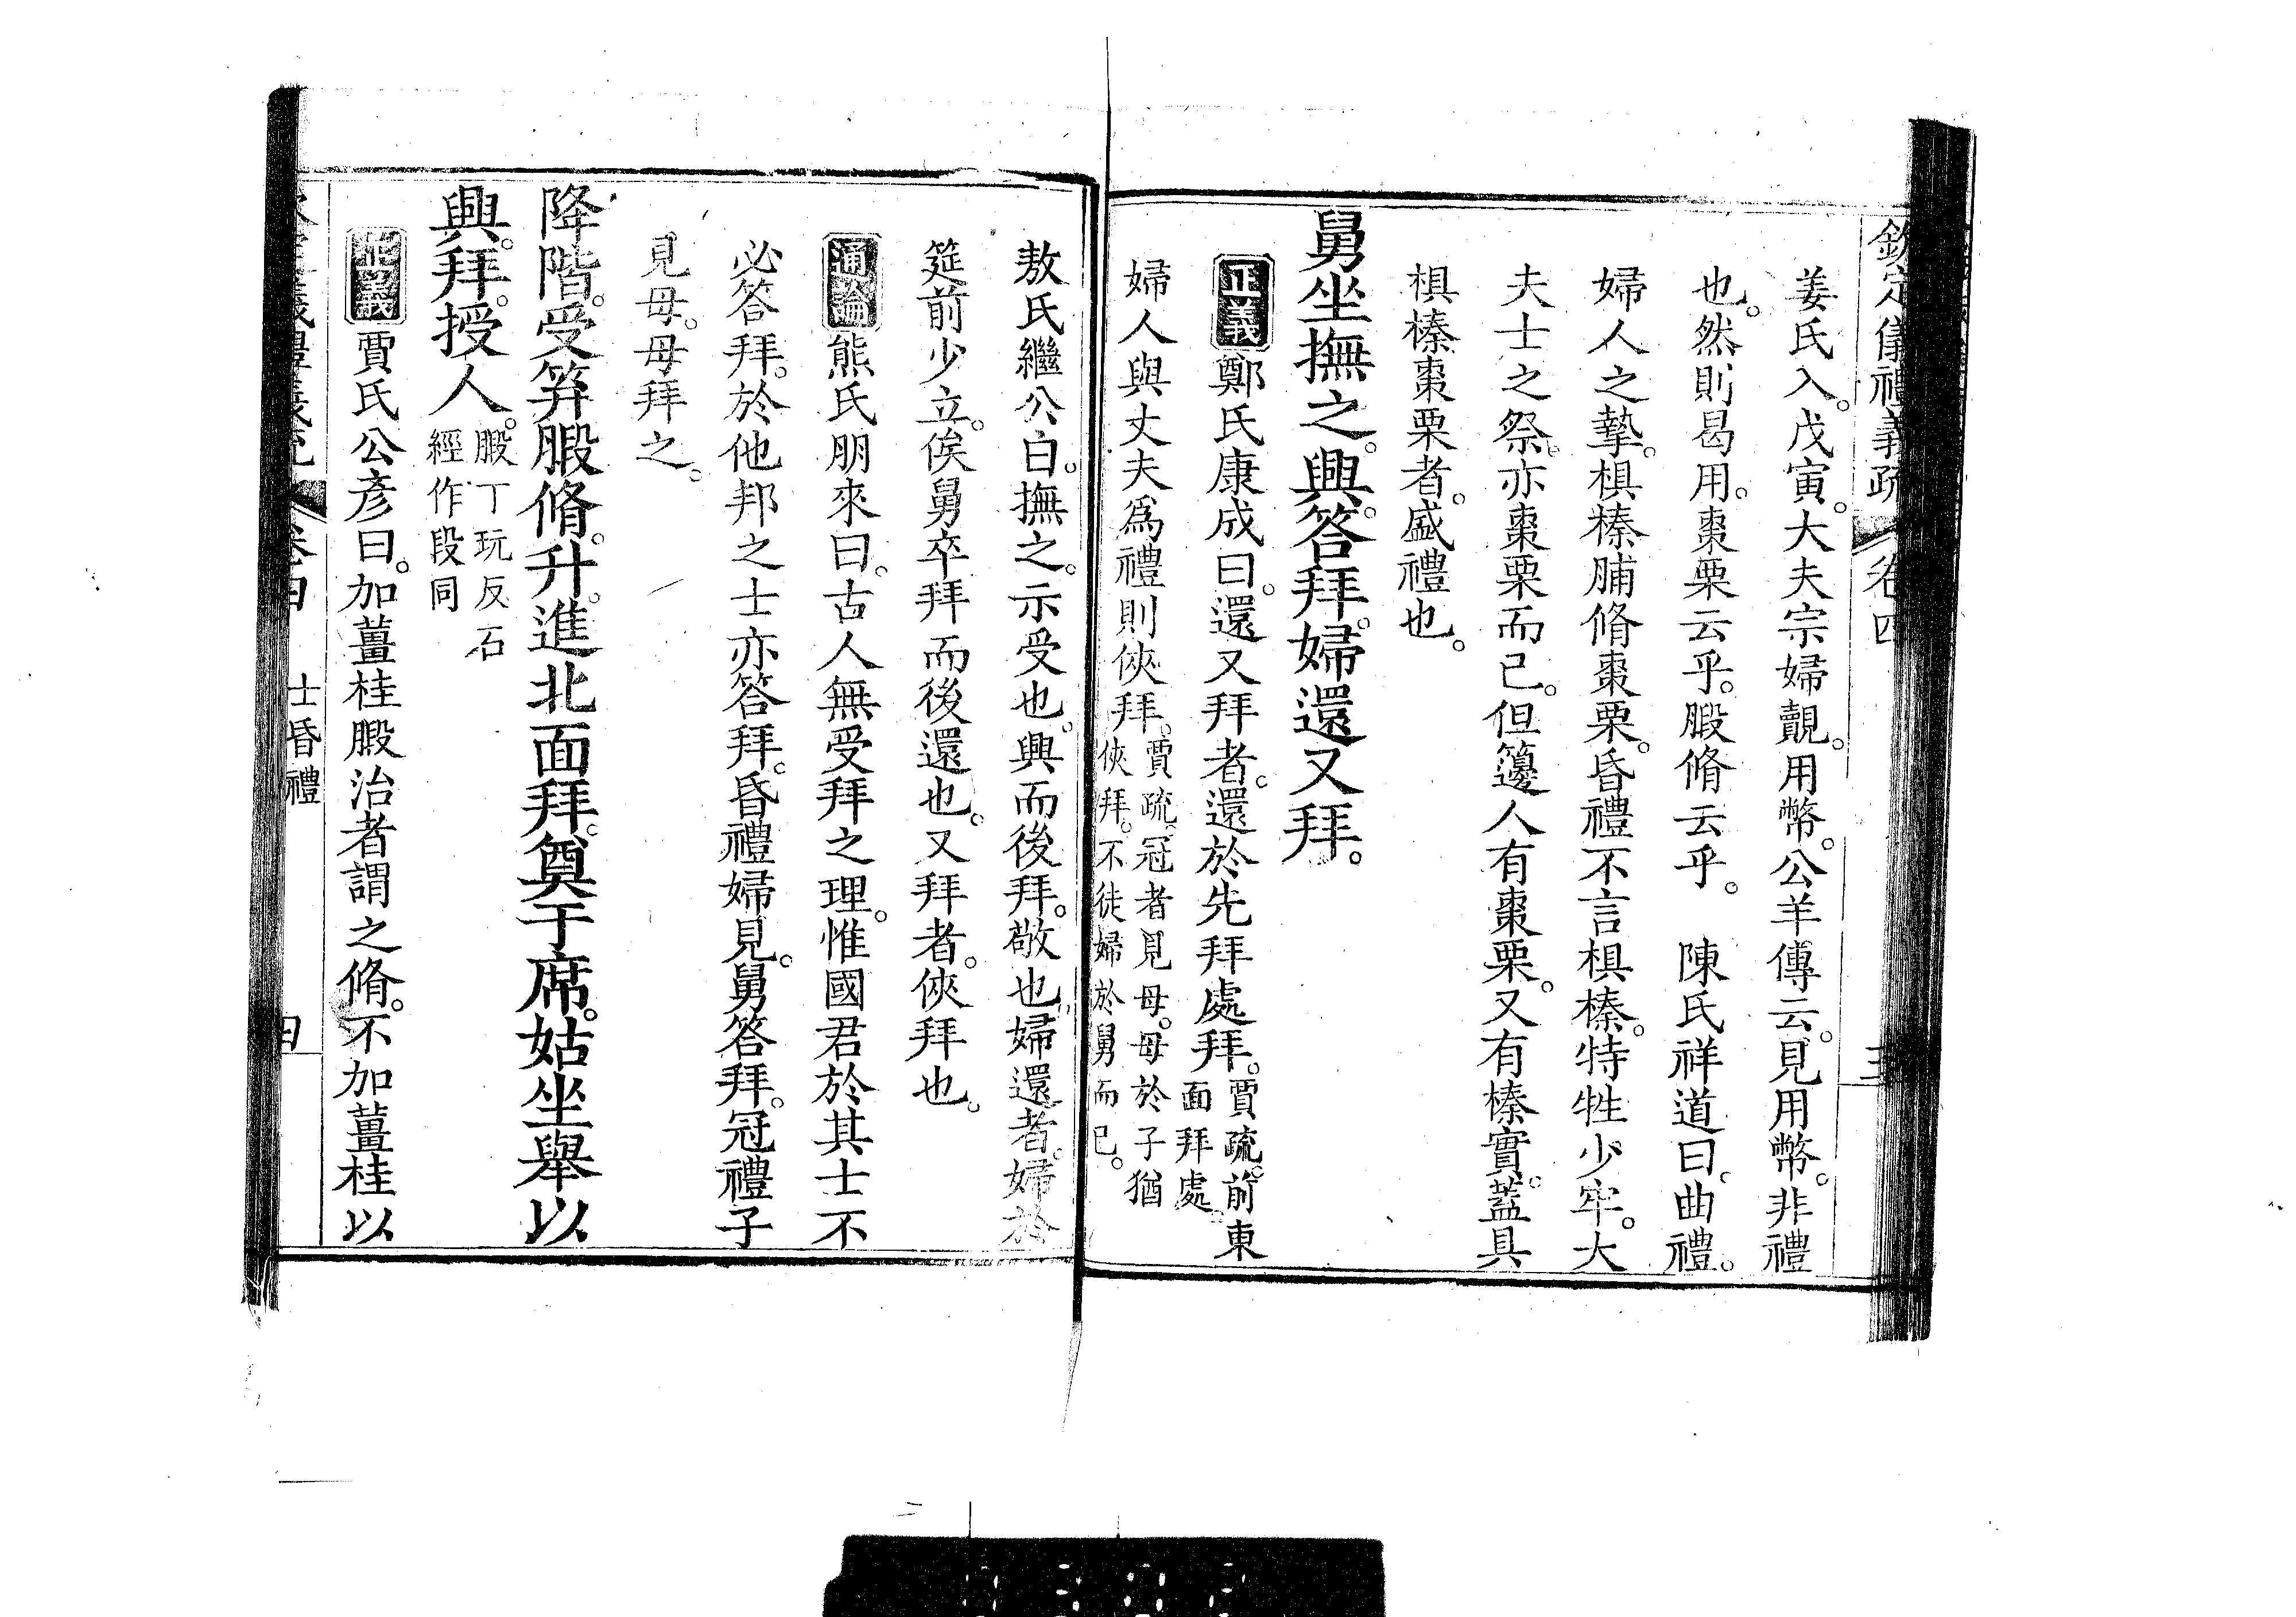 欽定儀禮義疏 卷四
姜氏入。戊寅。大夫宗婦覿。用幣。公羊傳云。見用幣。非禮
也。然則曷用。棗栗云乎。腶脩云乎。 陳氏祥道曰。曲禮。
婦人之摯。椇榛脯脩棗栗。昏禮不言椇榛。特牲少牢。大
夫士之祭。亦棗栗而已。但籩人有棗栗。又有榛實。蓋具
椇榛棗栗者。盛禮也。
舅坐撫之。興。答拜。婦還又拜。
正義 鄭氏康成曰。還又拜者。還於先拜處拜。賈疏。前東
面拜處。
婦人與丈夫爲禮則俠拜。賈疏。冠者見母。母於子猶
俠拜。不徒婦於舅而已。
敖氏繼公曰。撫之。示受也。興而後拜。敬也。婦還者。婦於
筵前少立。俟舅卒拜而後還也。又拜者。俠拜也。
通論 熊氏朋來曰。古人無受拜之理。惟國君於其士不
必答拜。於他邦之士亦答拜。昏禮婦見。舅答拜。冠禮子
見母。母拜之。
降階。受笲腶脩。升。進。北面拜。奠于席。姑坐舉以
興。拜。授人。腶丁玩反石
經作段同
正義 賈氏公彥曰。加薑桂腶治者謂之脩。不加薑桂以
士昏禮